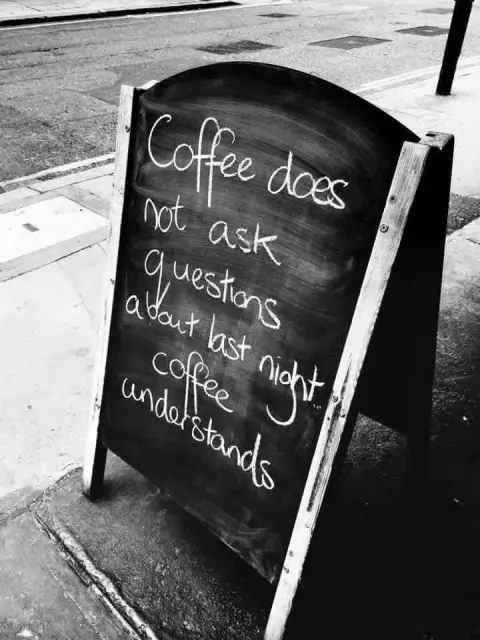 Coffee does
not ask
questions
about last night...
coffee
understands